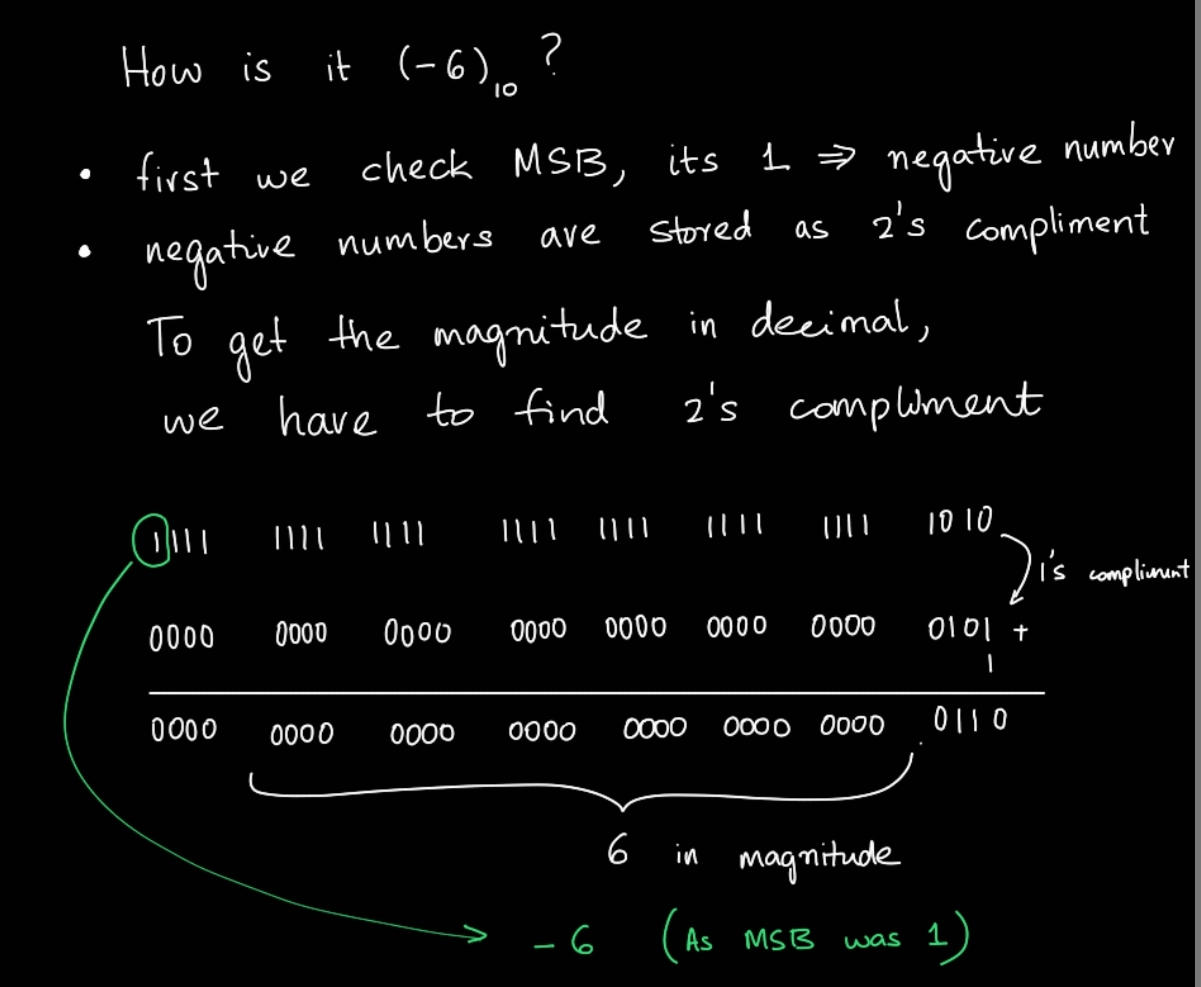 How is it (-6)₁₀ ?
• first we check MSB, its 1 ⇒ negative number
• negative numbers are stored as 2's compliment
To get the magnitude in decimal,
we have to find 2's compliment
1111 1111 1111 1111 1111 1111 1111 1010
1's compliment
0000 0000 0000 0000 0000 0000 0000 0101 +
1
0000 0000 0000 0000 0000 0000 0000 0110
6 in magnitude
-6 (As MSB was 1)